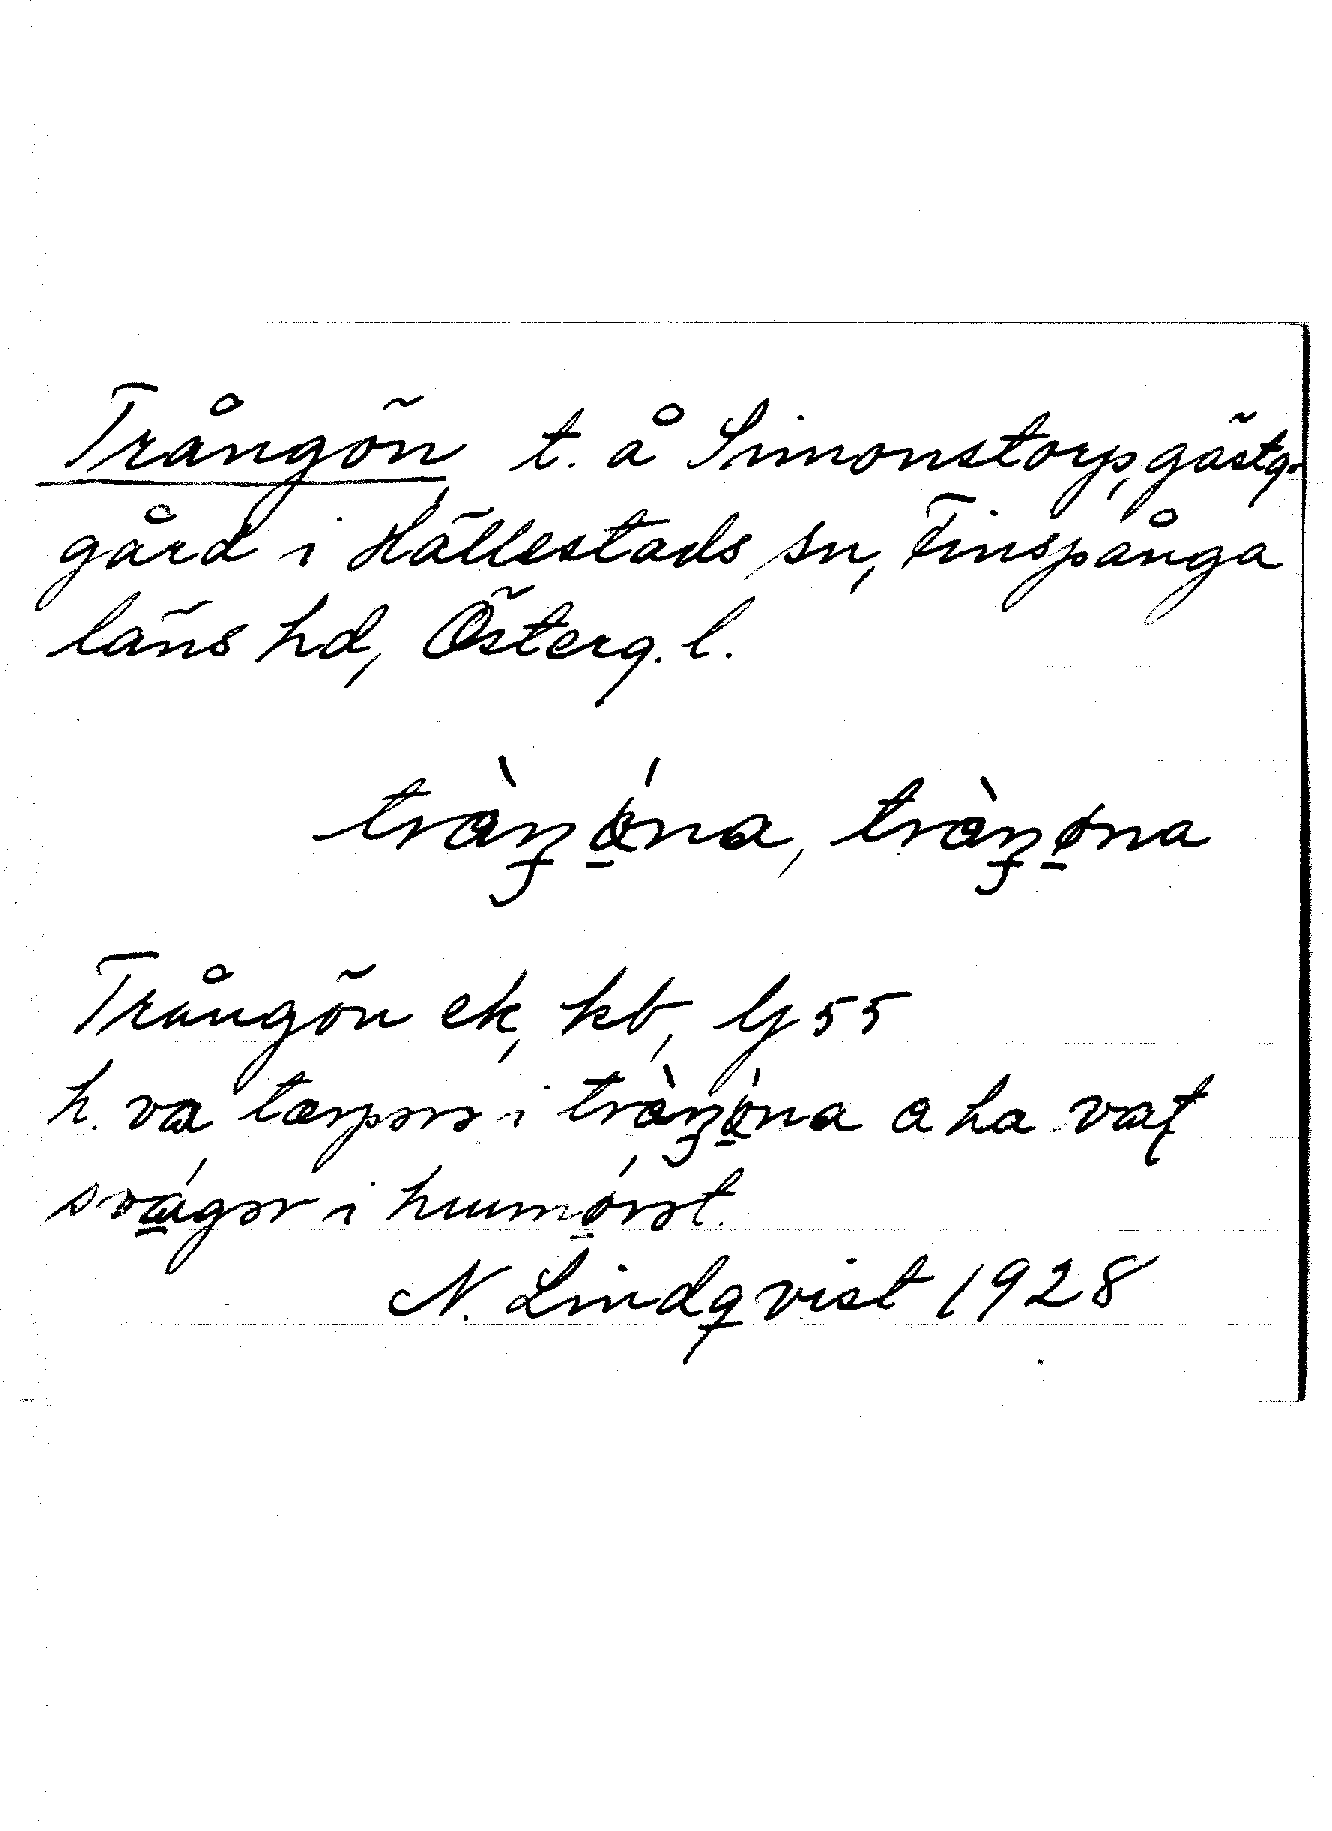 Trångön t. å Simonstorp, gästg.
gård i Hällestads sn, Finspånga
läns hd, Österg. l.
tràŋǿna, tràŋøna
Trångön ek, kb, Gj 55
h. va tærpər i tràŋǿna a ha vaʈ
svágər i humǿrət.
N. Lindqvist 1928